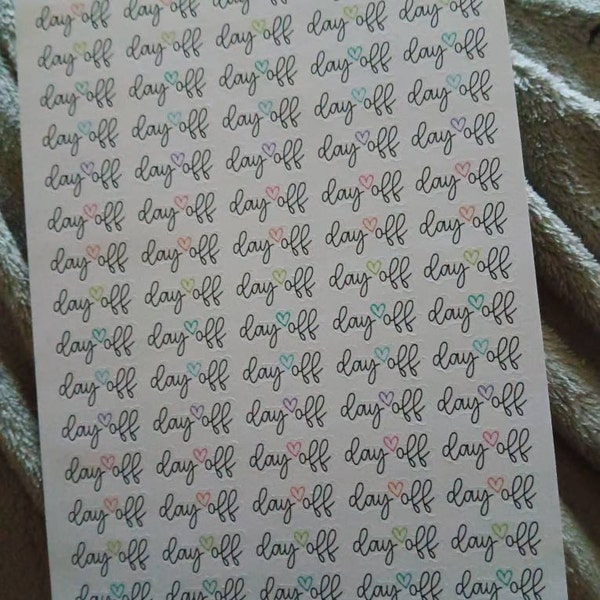 day off day off day off
day off day off day off day off day off
day off day off day off day off day off
day off day off day off day off day off
day off day off day off day off day off
day off day off day off day off day off
day off day off day off day off day off
day off day off day off day off day off
day off day off day off day off day off
day off day off day off day off day off
day off day off day off day off day off
day off day off day off day off day off
day off day off day off day off day off
day off day off day off day off day off
day off day off day off day off day off